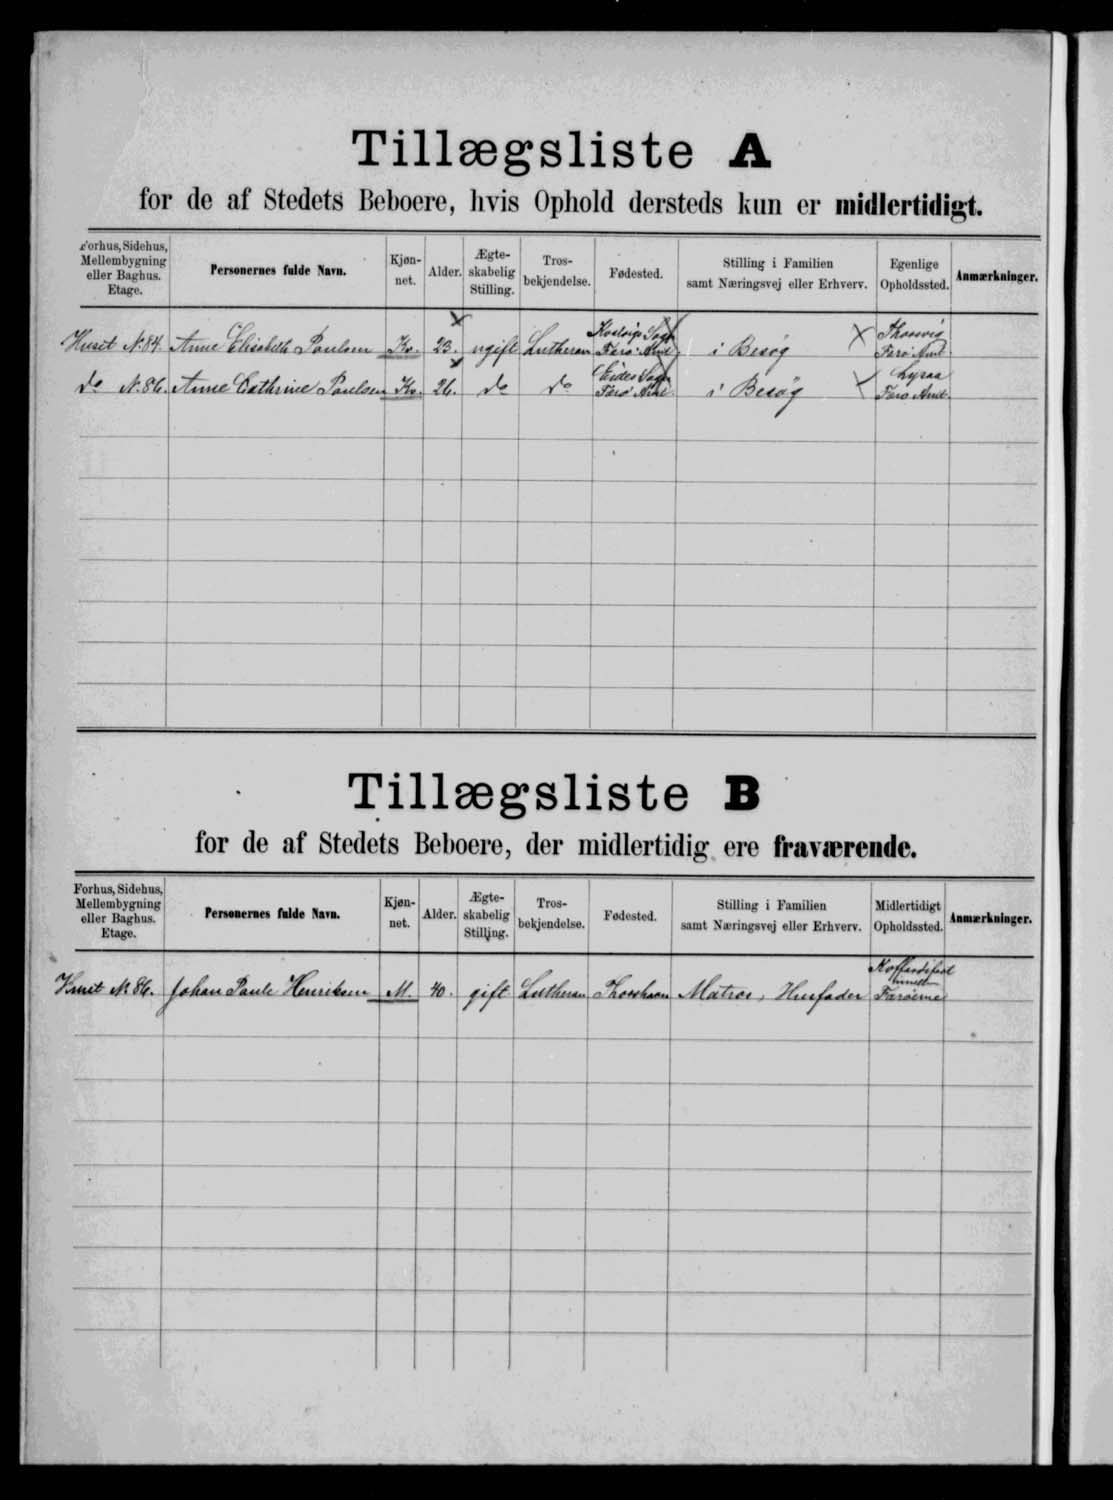 Tillægsliste A
for de af Stedets Beboere, hvis Ophold dersteds kun er midlertidigt.
Forhus, Sidehus, Mellembygning eller Baghus. Etage.
Personernes fulde Navn.
Kjøn-
net.
Alder.
Ægte-
skabelig
Stilling.
Tros-
bekjendelse.
Fødested.
Stilling i Familien
samt Næringsvej eller Erhverv.
Egenlige
Opholdssted.
Anmærkninger.
Huset N. 84. Anne Elisabeth Poulsen Kv. 23. ugift Lutheran Færø Amt i Besøg Færø Amt
do N. 86. Anne Cathrine Poulsen Kv. 26. do do Eides Sogn Færø Amt i Besøg Færø Amt
Tillægsliste B
for de af Stedets Beboere, der midlertidig ere fraværende.
Forhus, Sidehus,
Mellembygning
eller Baghus.
Etage.
Personernes fulde Navn.
Kjøn-
net.
Alder.
Ægte-
skabelig
Stilling.
Tros-
bekjendelse.
Fødested.
Stilling i Familien
samt Næringsvej eller Erhverv.
Midlertidigt
Opholdssted.
Anmærkninger.
Huset N. 86. Johan Paule Henriksen M. 40. gift Lutheran Thorshavn Matros, Husfader Koffardifart Færøerne